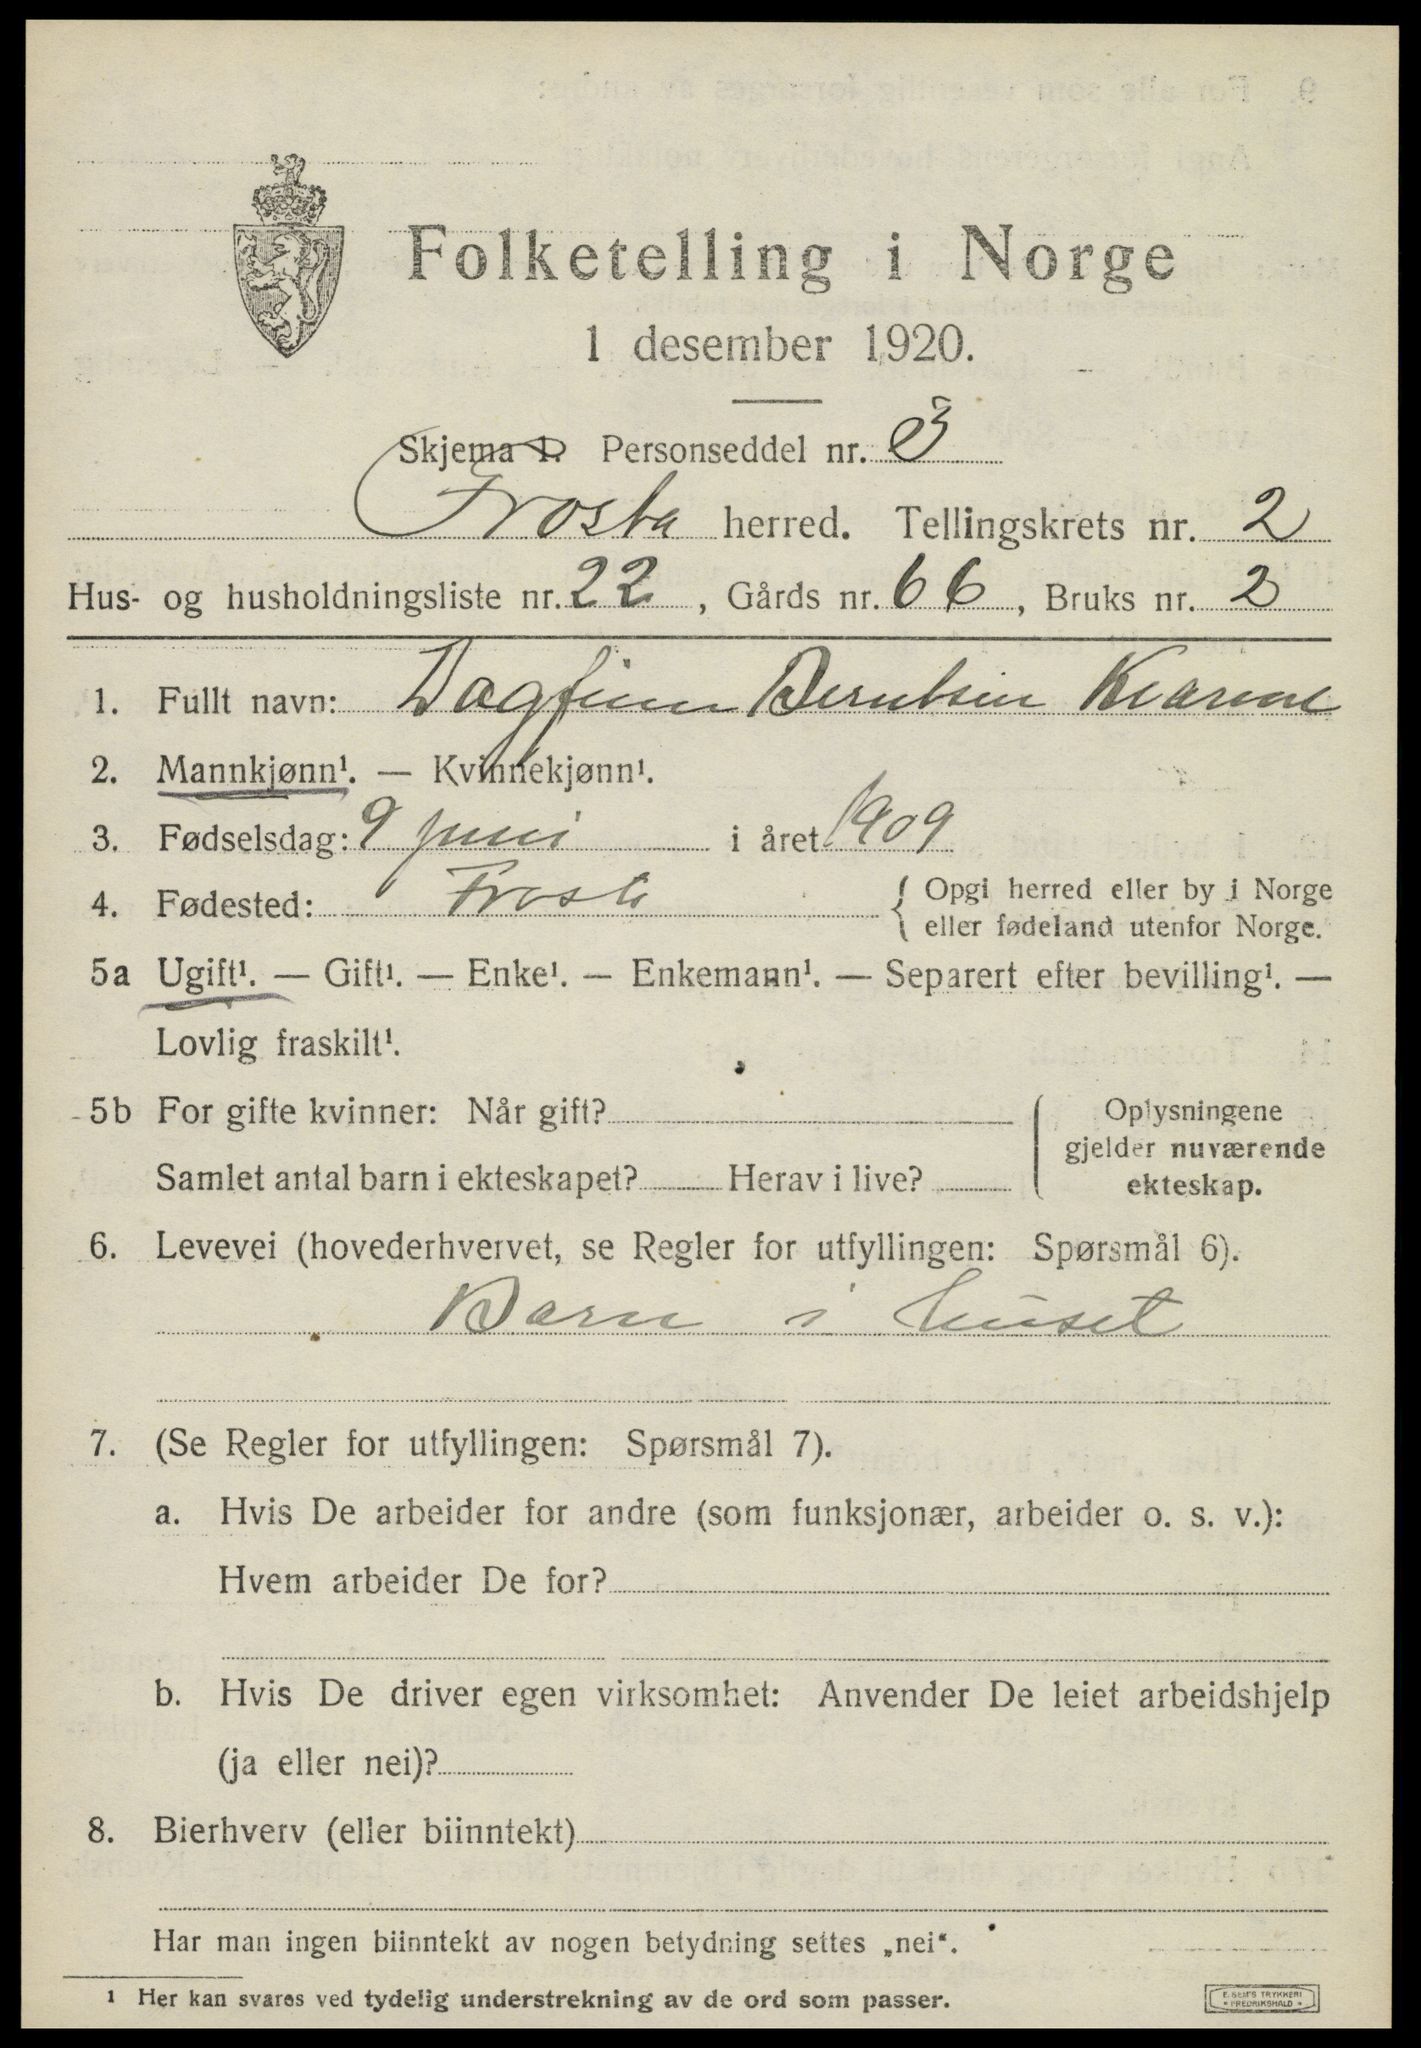 Folketelling i Norge
1 desember 1920.
Skjema 1. Personseddel nr. 3
Frosta herred. Tellingskrets nr. 2
Hus- og husholdningsliste nr. 22, Gårds nr. 66, Bruks nr. 2
1. Fullt navn: Dagfinn Berntsen Kvarme
2. Mannkjønn¹. — Kvinnekjønn¹.
3. Fødselsdag: 9 juni i året 1909
4. Fødested: Frosta { Opgi herred eller by i Norge
eller fødeland utenfor Norge.
5a Ugift¹. — Gift¹. — Enke¹. — Enkemann¹. — Separert efter bevilling¹. —
Lovlig fraskilt¹.
5b For gifte kvinner: Når gift?
Samlet antal barn i ekteskapet? Herav i live?
Oplysningene
gjelder nuværende
ekteskap.
6. Levevei (hovederhvervet, se Regler for utfyllingen: Spørsmål 6).
Barn i huset
7. (Se Regler for utfyllingen: Spørsmål 7).
a. Hvis De arbeider for andre (som funksjonær, arbeider o. s. v.):
Hvem arbeider De for?
b. Hvis De driver egen virksomhet: Anvender De leiet arbeidshjelp
(ja eller nei)?
8. Bierhverv (eller biinntekt)
Har man ingen biinntekt av nogen betydning settes „nei".
¹ Her kan svares ved tydelig understrekning av de ord som passer.
E. SEM'S TRYKKERI
* FREDRIKSHALD *